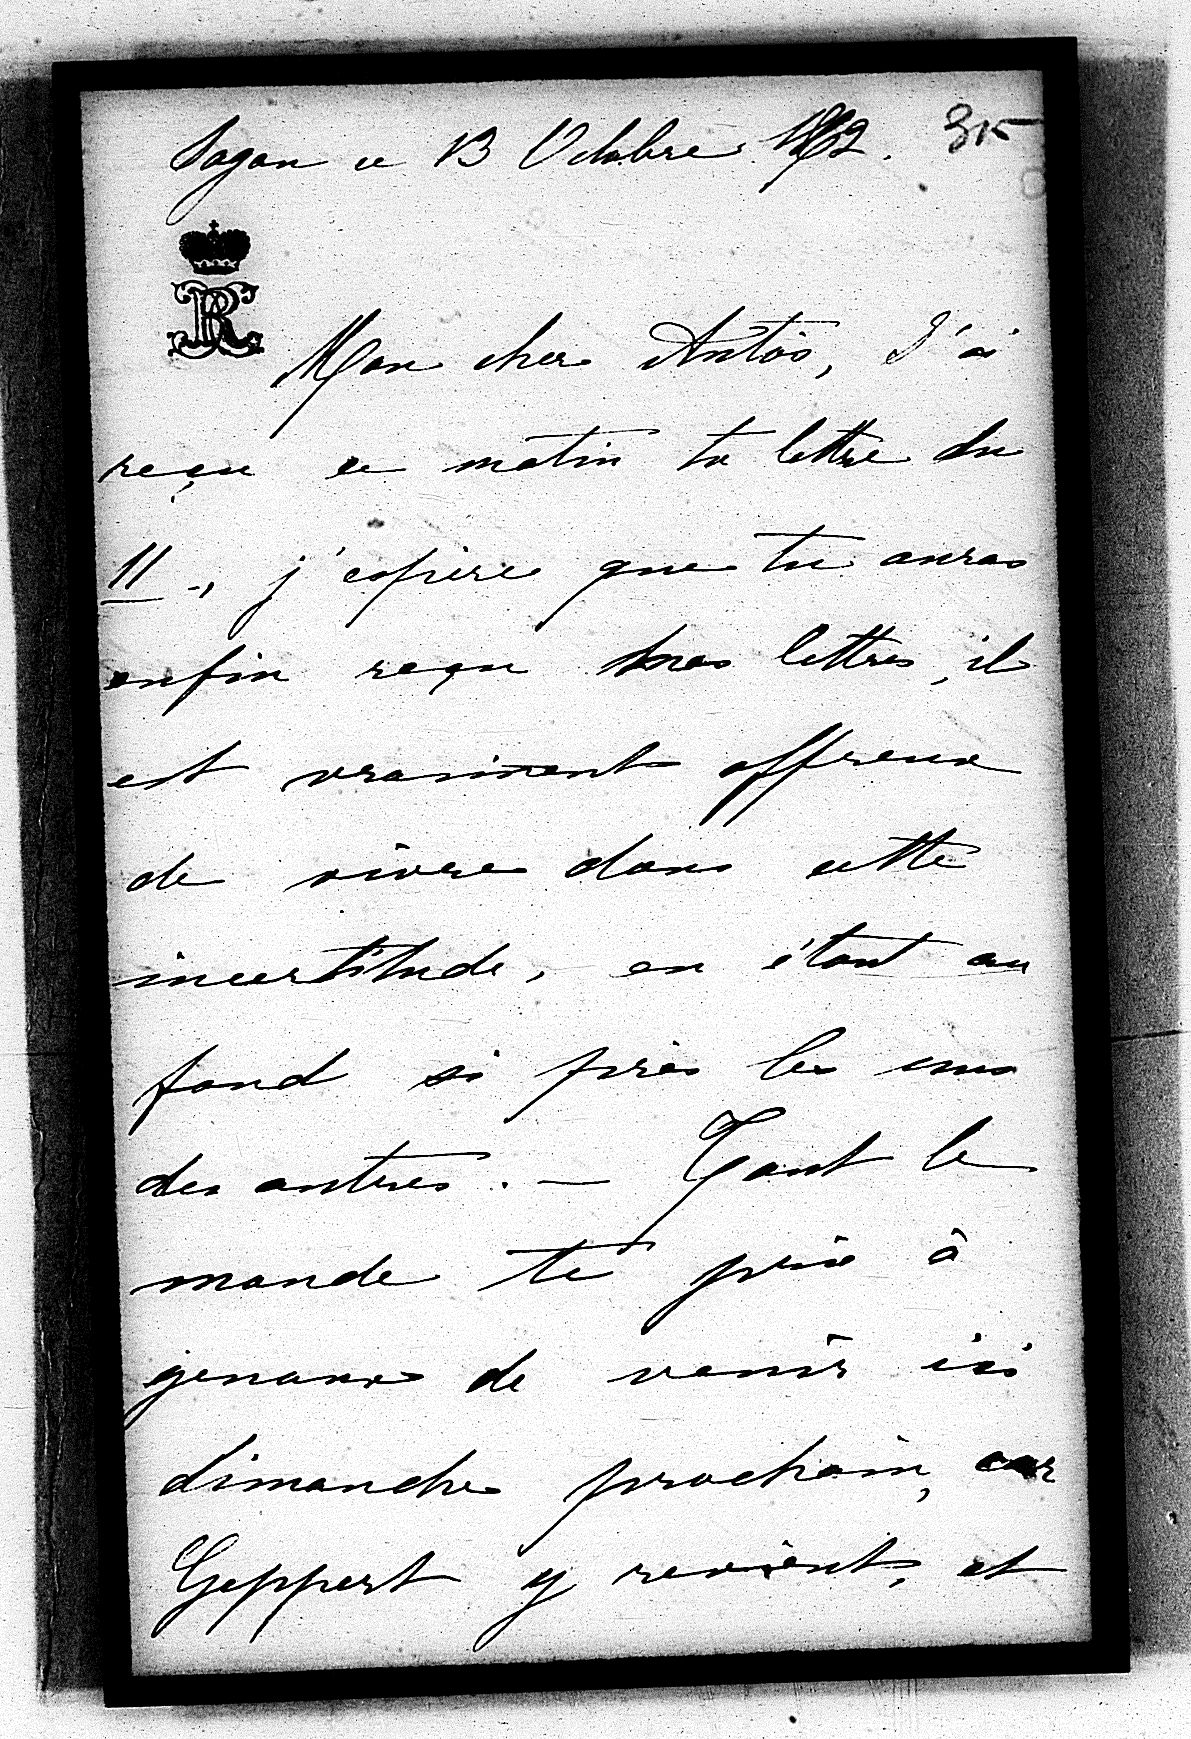 Sagan ce 13 Octobre 1862. 315
Mon cher Antoś, J'ai
reçu ce matin ta lettre du
11 -, j'espère que tu auras
enfin reçu mes lettres, il
est vraiment affreux
de vivre dans cette
incertitude, en étant au
fond si près les uns
des autres. — Tout le
monde te prie à
genoux de venir ici
dimanche prochain, car
Geppert y revient, et